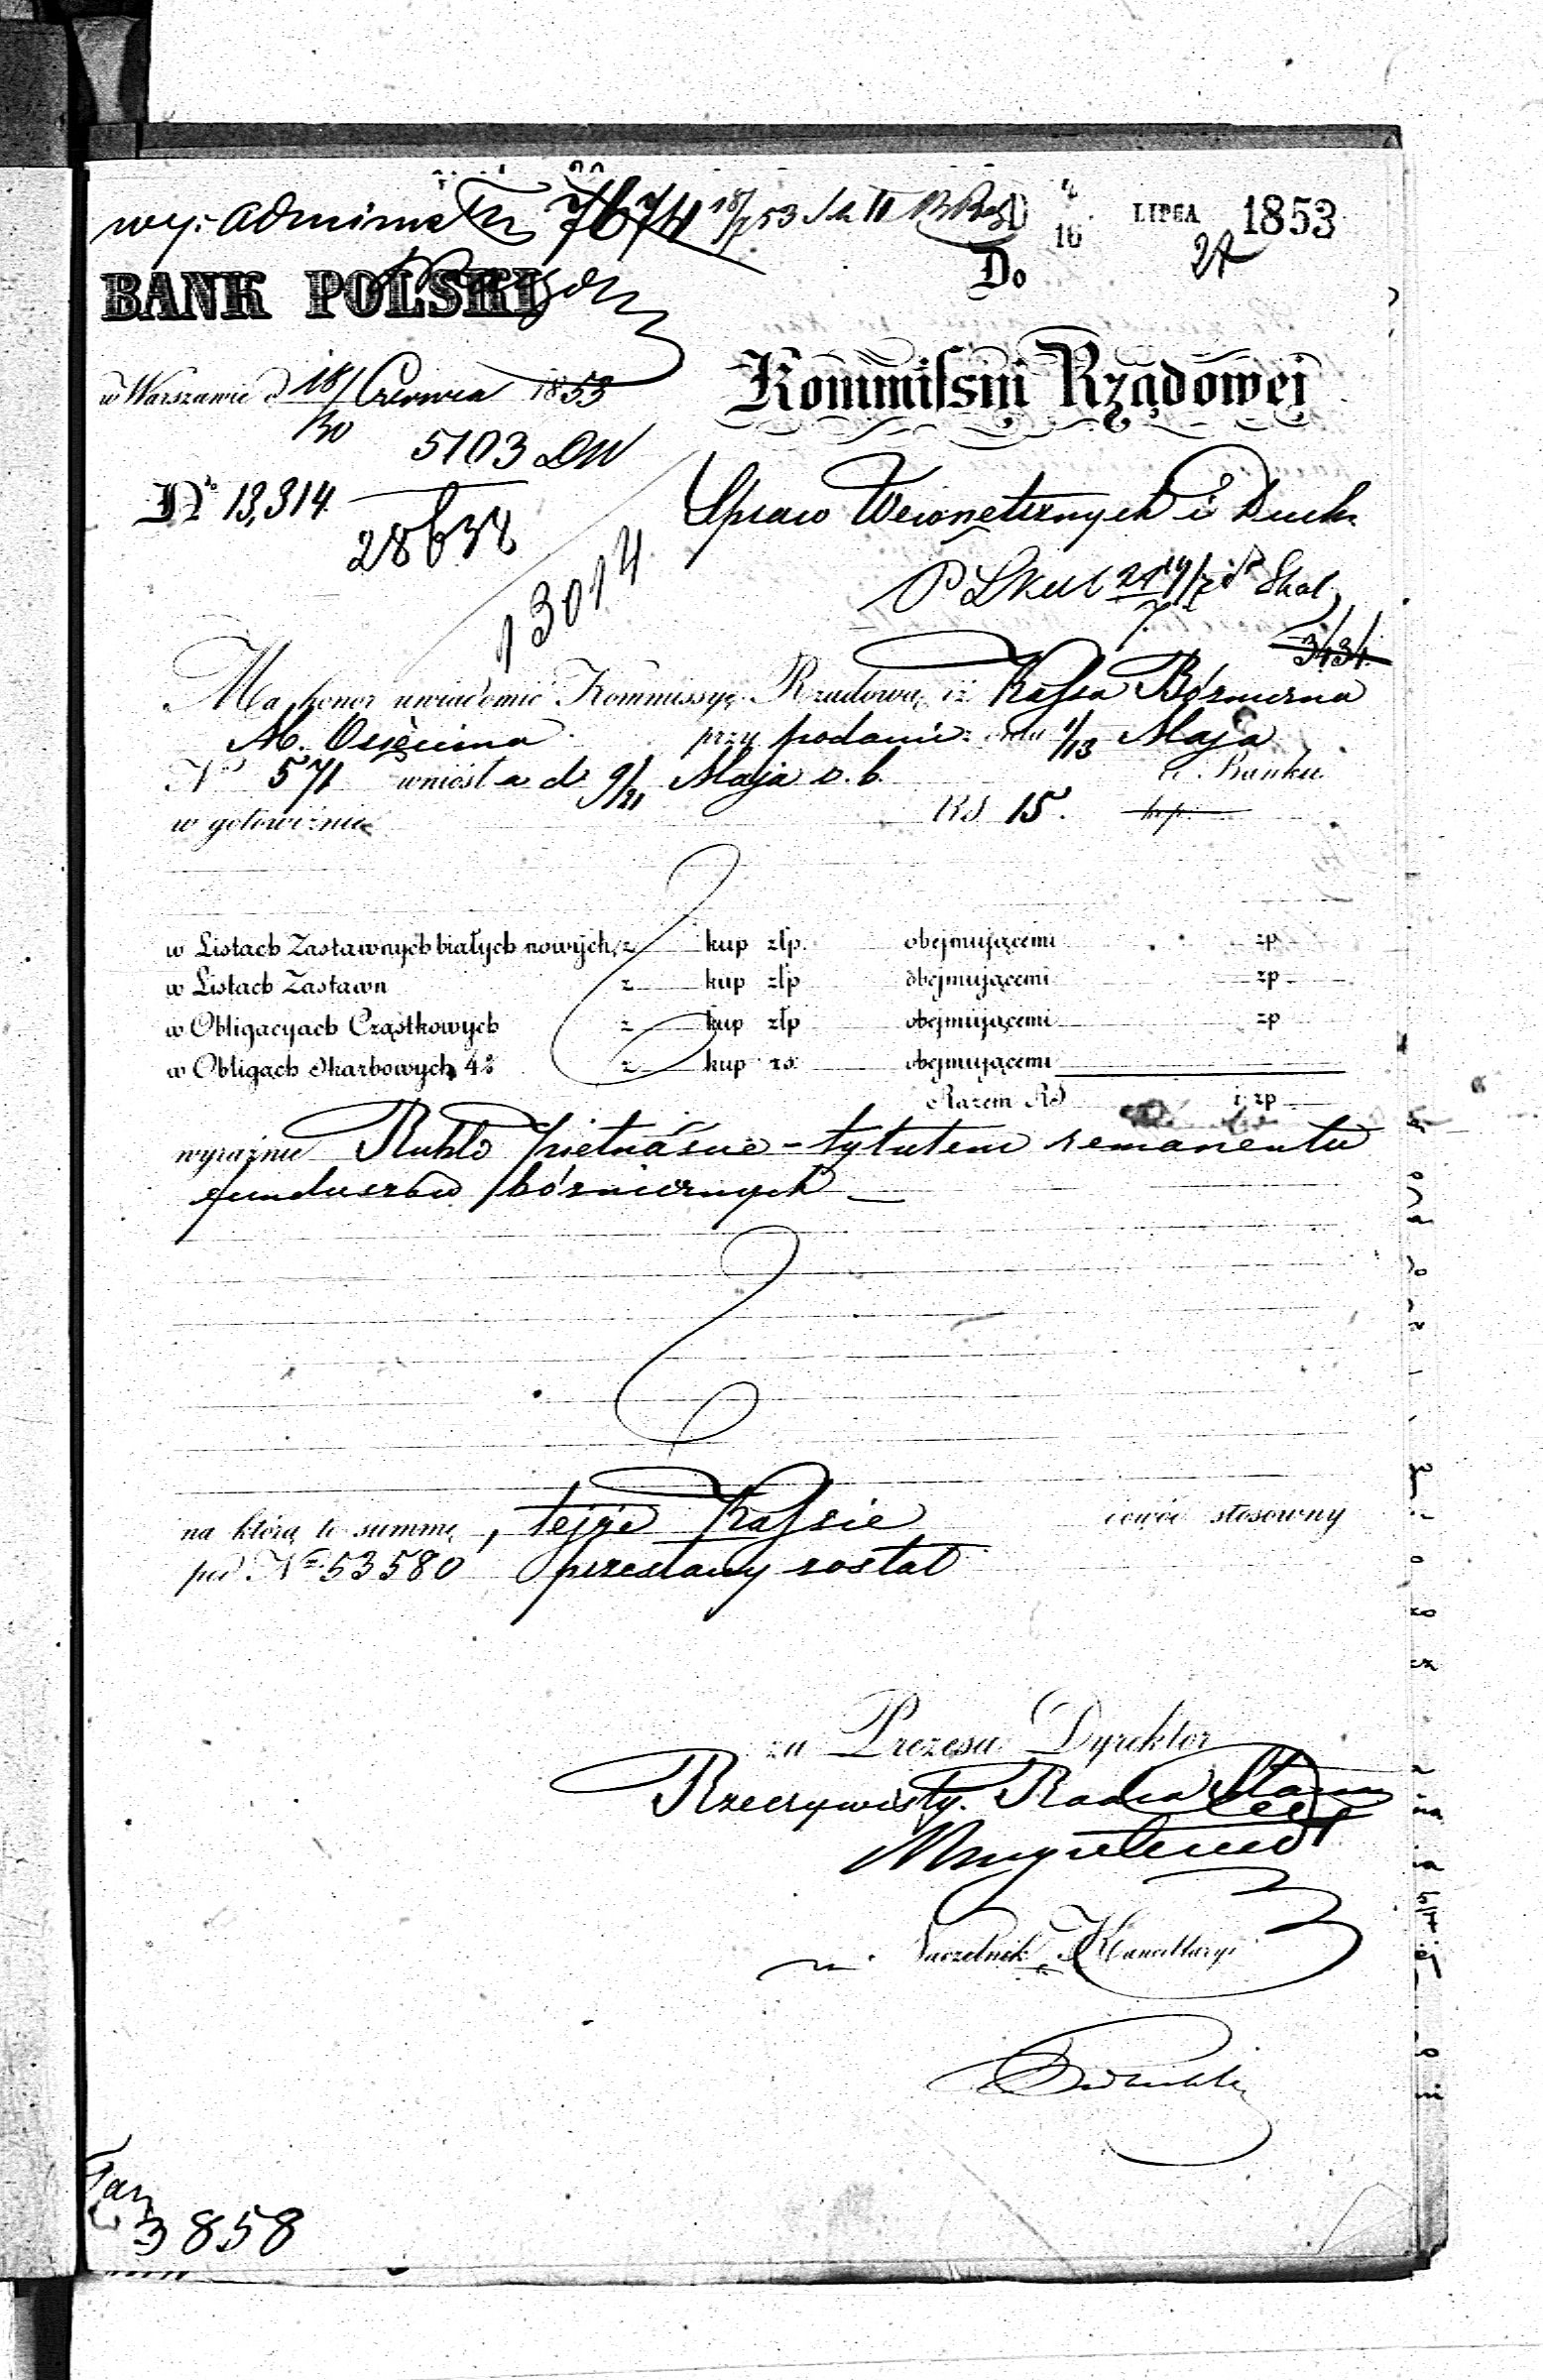 wy: 7674 18/7 53
4/16 LIPCA 1853
27
BANK POLSKI
Do
w Warszawie d 18/30 Czerwca 1853
Kommissyi Rządowej
5103 DW
No 13,314
28638
13014
Spraw Wewnętrznych i Duch.
3434
Ma honor uwiadomić Kommissyę Rządową, iż Kassa Bóżniczna
M. Osięcina przy podaniu z dnia 1/13 Maja
No 571 wniosła d 9/21 Maja r. b. do Banku
w gotowiźnie RS 15. kop.
w Listach Zastawnych białych nowych, z kup złp. obejmującemi zp
w Listach Zastawn z kup złp obejmującemi zp
w Obligacyach Cząstkowych z kup złp obejmującemi zp
w Obligach Skarbowych 4% z kup rs. obejmującemi
Razem RS i zp
wyraźnie Rubli piętnaście - tytułem remanentu
funduszów bóżnicznych —
na którą to summę, tejże Kassie dowód stosowny
pod No 53580 przesłany został
za Prezesa Dyrektor
Rzeczywisty Radca Stanu
Naczelnik Kancellaryi
3858